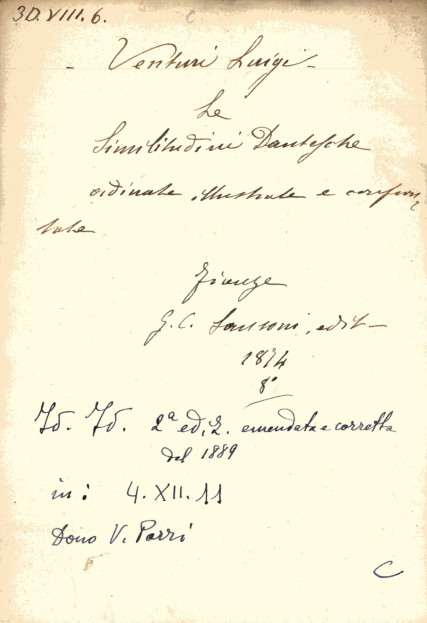 3D.VIII.6.
Venturi Luigi
Le
Similitudini Dantesche
ordinate, illustrate e confron
tate
Firenze
G. C. Sansoni, edit
1874
8°
Id. Id. 2ª ediz. emendata e corretta
del 1889
in: 4.XII.11
Dono V. Parri
C